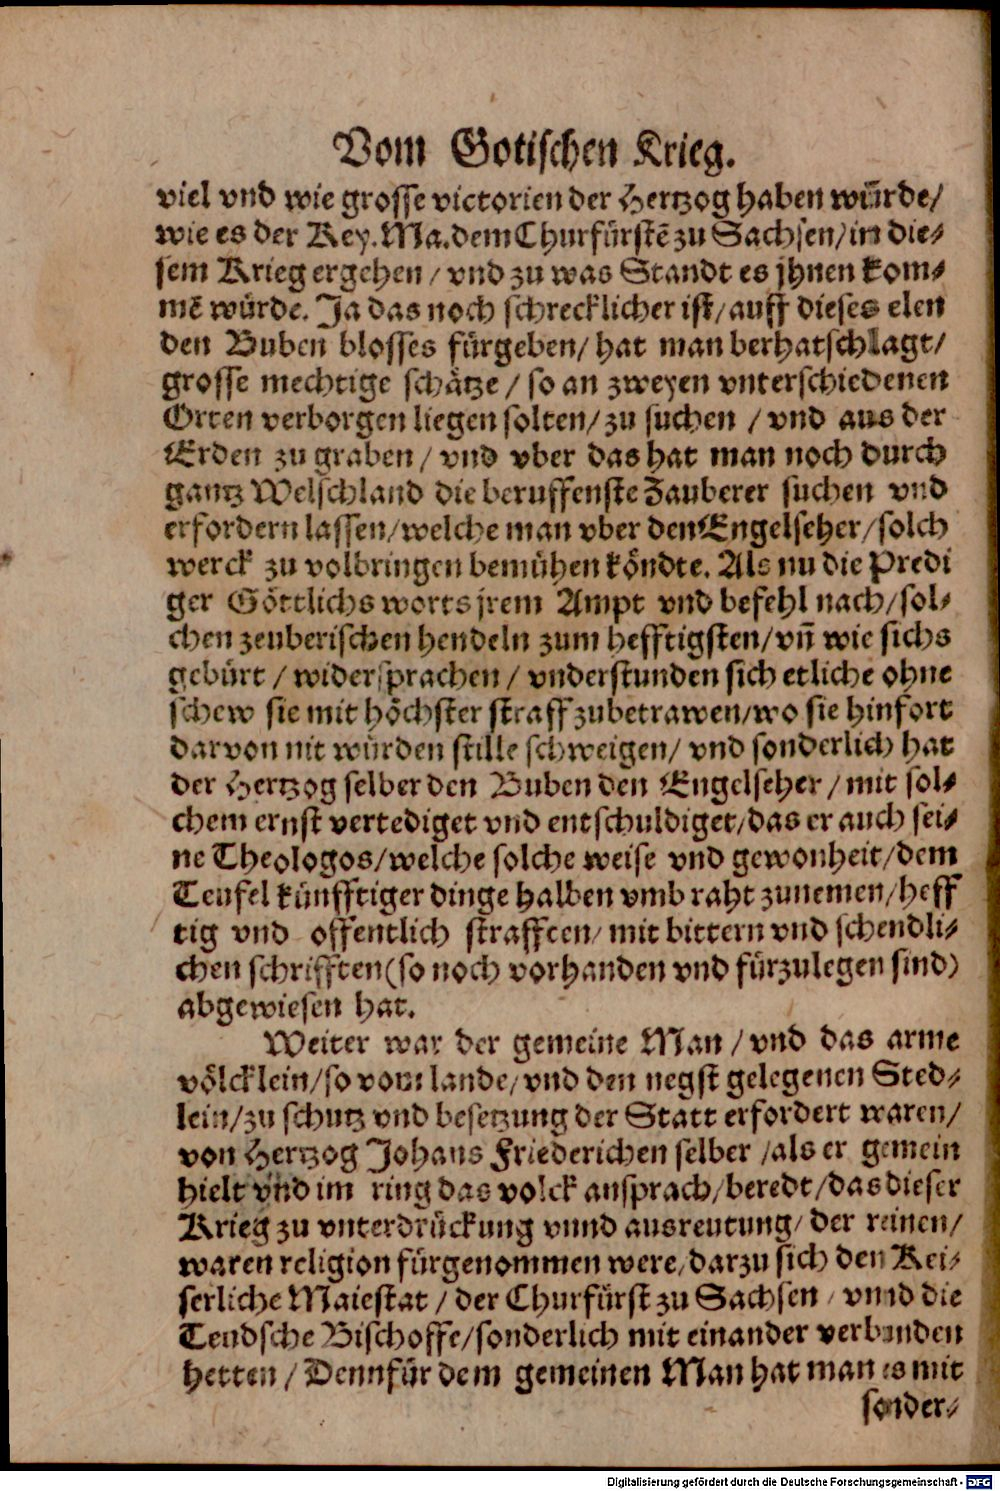 Vom Gotischen Krieg.
viel vnd wie grosse victorien der Hertzog haben würde/
wie es der Key. Ma. dem Churfürstẽ zu Sachsen/ in die-
sem Krieg ergehen / vnd zu was Standt es jhnen kom-
mẽ würde. Ja das noch schrecklicher ist/ auff dieses elen
den Buben blosses fürgeben/ hat man berhatschlagt/
grosse mechtige schätze / so an zweyen vnterschiedenen
Orten verborgen liegen solten/ zu suchen / vnd aus der
Erden zu graben / vnd vber das hat man noch durch
gantz Welschland die beruffenste Zauberer suchen vnd
erfordern lassen/welche man vber den Engelseher/solch
werck zu volbringen bemühen köndte. Als nu die Predi
ger Göttlichs worts jrem Ampt vnd befehl nach/sol-
chen zeuberischen hendeln zum hefftigsten/vñ wie sichs
gebürt / widersprachen / vnderstunden sich etliche ohne
schew sie mit höchster straff zubetrawen/wo sie hinfort
darvon nit würden stille schweigen/ vnd sonderlich hat
der Hertzog selber den Buben den Engelseher / mit sol-
chem ernst vertediget vnd entschuldiget/das er auch sei-
ne Theologos/welche solche weise vnd gewonheit/dem
Teufel künfftiger dinge halben vmb raht zunemen/heff
tig vnd offentlich strafften/ mit bittern vnd schendli-
chen schrifften(so noch vorhanden vnd fürzulegen sind)
abgewiesen hat.
Weiter war der gemeine Man / vnd das arme
völcklein/so vom lande/vnd den negst gelegenen Sted-
lein/zu schutz vnd besetzung der Statt erfordert waren/
von Hertzog Johans Friederichen selber /als er gemein
hielt vnd im ring das volck ansprach/beredt/das dieser
Krieg zu vnterdrückung vnnd ausreutung/ der reinen/
waren religion fürgenommen were/darzu sich den Kei-
serliche Maiestat / der Churfürst zu Sachsen / vnnd die
Teudsche Bischoffe/sonderlich mit einander verbunden
hetten / Denn für dem gemeinen Man hat man es mit
sonder-
Digitalisierung gefördert durch die Deutsche Forschungsgemeinschaft - DFG